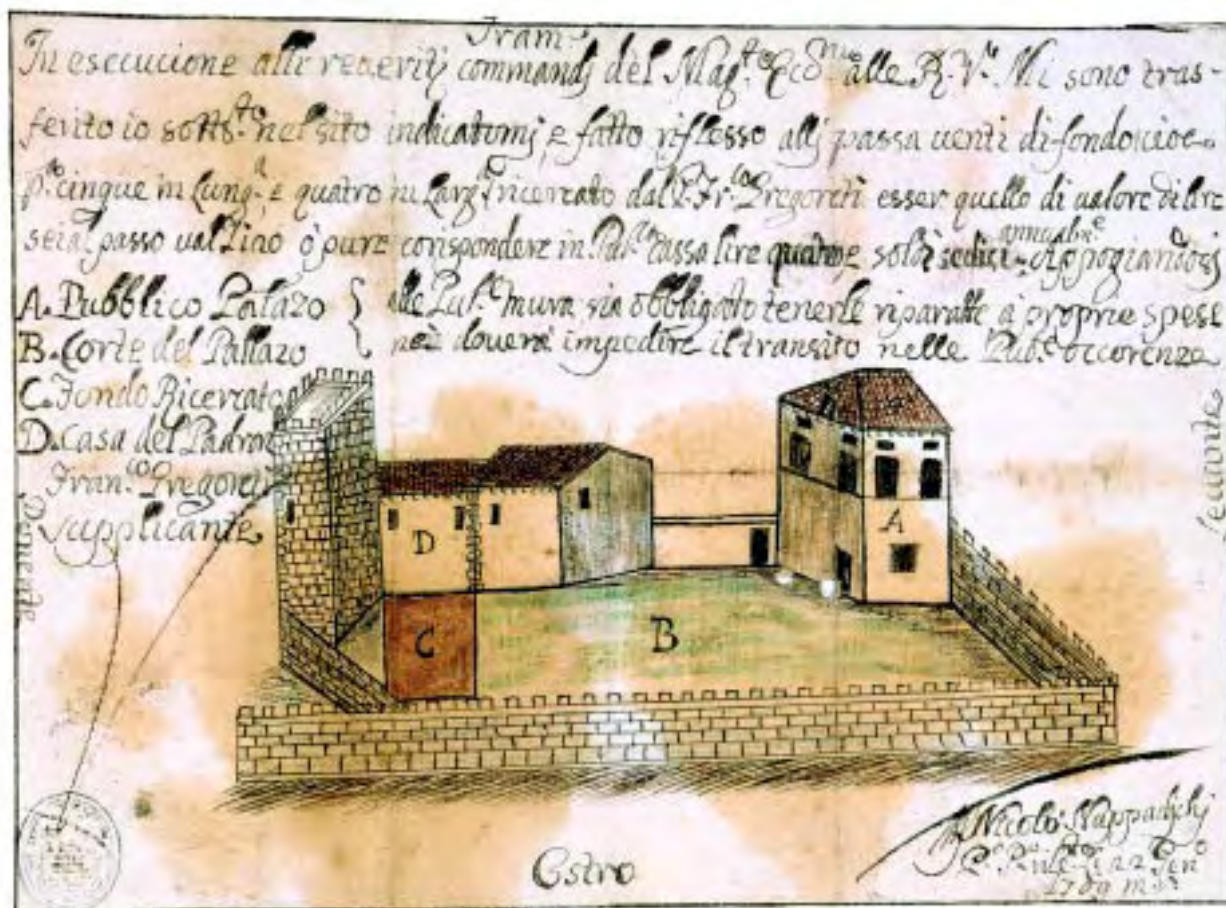 Tram.e
In esecucione alli reveriti commandi del Mag.to alle Mi sono tras-
ferito io sotts.to nel sito indicatomi, e fatto riflesso alli passa venti di fondo cioe
p.a cinque in Lung.a, e quatro in Larg.a ricercato dal Fr.co Gregoreti esser quello di valore di lire
sei al passo val Lino ò pure corispondere in Pub.ca Cassa lire quatro, e soldi sedici annualm.e Appogiandosi
A. Pubblico Palazo { alle Pub.e mura sia obbligato tenerle riparatte à proprie spese
B. Corte del Pallazo nè doverà impedire il transito nelle Pub.e occorenze
C. Fondo Ricercato
D. Casa del Padron
Fran.co Gregoreti
supplicante
Ponente
Levante
D
A
C
B
Ostro
Nicolò